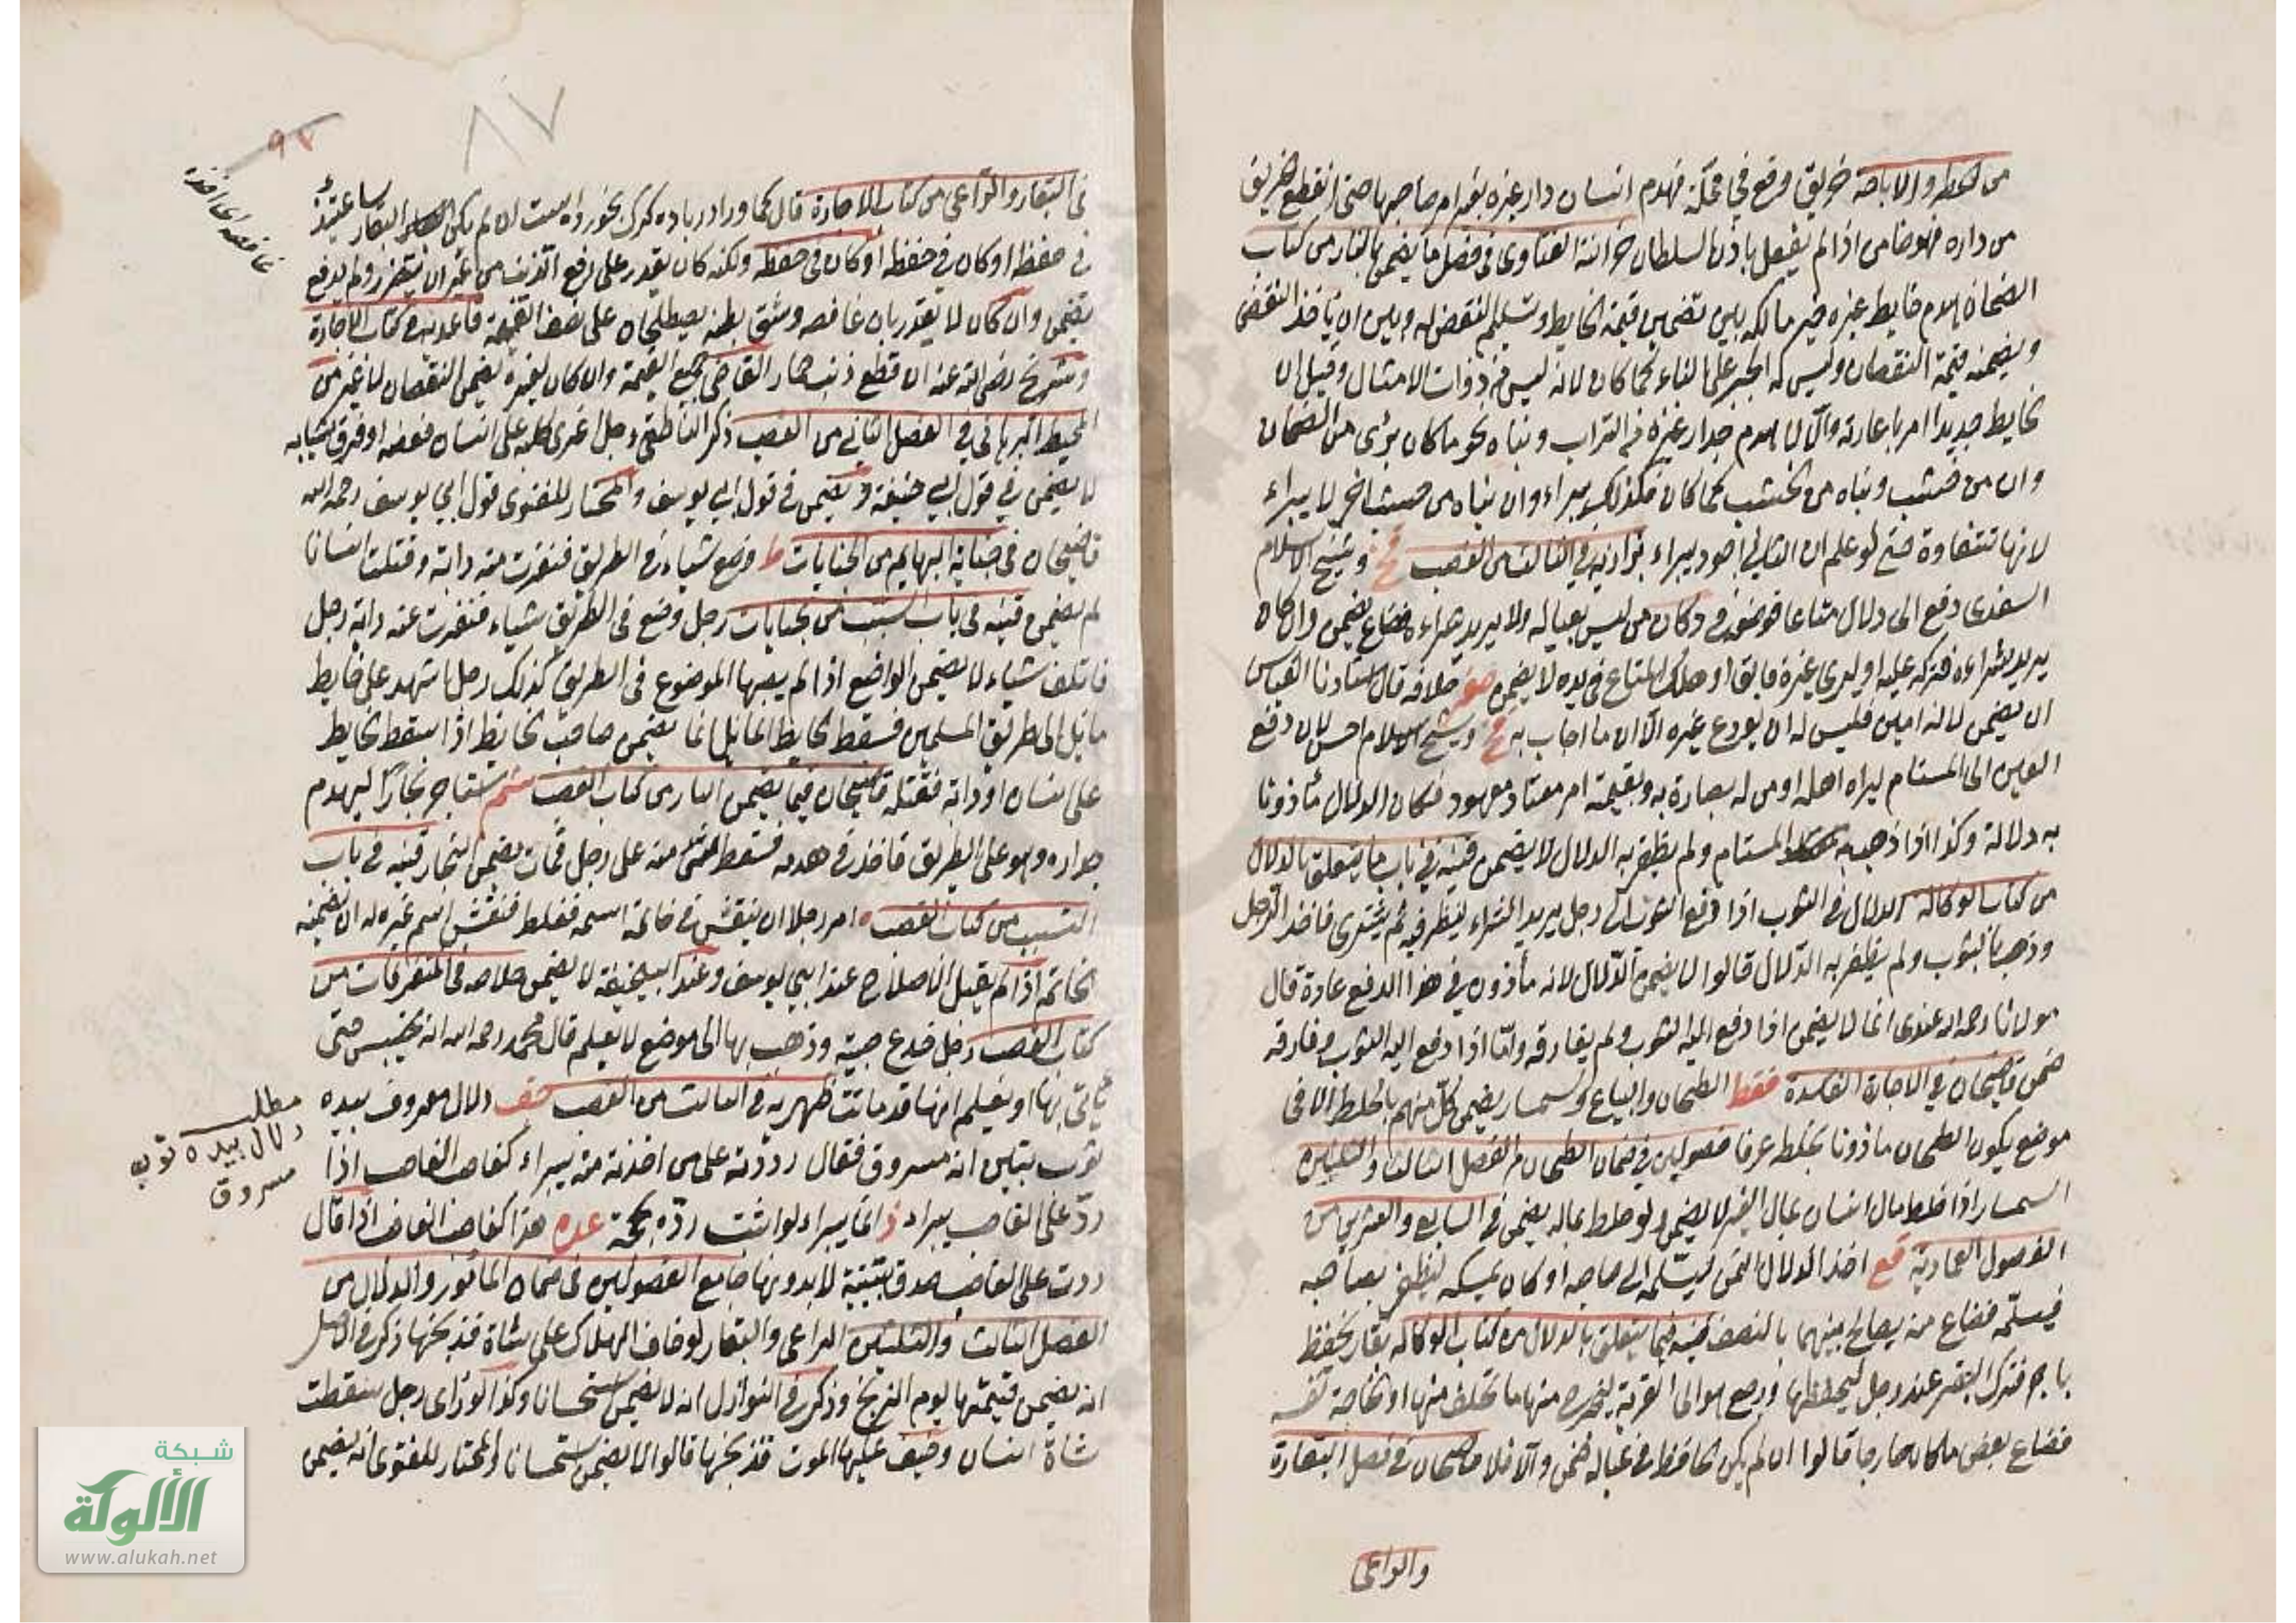 من الحظر والاباحة حريق وقع في محلة فهدم انسان دار غيره بغير امر صاحبها حتى انقطع الحريق
من داره فهو ضامن اذا لم يفعل باذن السلطان خزانة الفتاوى في فصل ما يضمن بالنار من كتاب
الضمان هدم حايط غيره خير مالكه بين تضمين قيمة الحايط وتسليم النقض له وبين ان ياخذ النقض
ويضمنه قيمة النقصان وليس له الجبر على البناء كما كان لانه ليس من ذوات الامثال وقيل ان
الحايط جديدا امر باعادته والا لا هدم جدار غيره من التراب وبناه نحو ما كان برئ من الضمان
وان من خشب وبناه من الخشب كما كان فكذلك يبراء وان بناه من خشب اخر لا يبراء
لانها تتفاوت حتى لو علم ان الثاني اجود يبراء بزازيه في الثالث من الغصب فخ وشيخ الاسلام
السغدى دفع الى دلال متاعا فوضعه في دكان من ليس بعياله ولا يريد شراءه فضاع يضمن وان كان
يريد شراءه فتركه عليه او ليرى غيره فابق او هلك المتاع في يده لا يضمن صغر خلافه قال استادنا القياس
ان يضمن لانه امين فليس له ان يودع غيره الا ان ما اجاب به فخ وشيخ الاسلام احسن لان دفع
العين الى المستام ليراه اهله او من له بصارة به وبقيمته امر معتاد معهود فكان الدلال مأذونا
به دلالة وكذا اذا ذهب به المستام ولم يظفر به الدلال لا يضمن قنيه في باب ما يتعلق بالدلال
من كتاب الوكالة الدلال في الثوب اذا دفع الثوب الى رجل يريد الشراء لينظر فيه ثم يشترى فاخذ الرجل
وذهب بالثوب ولم يظفر به الدلال قالوا لا يضمن الدلال لانه مأذون في هذا الدفع عادة قال
مولانا رحمه الله عندى انما لا يضمن اذا دفع اليه الثوب ولم يفارقه واما اذا دفع اليه الثوب وفارقه
ضمن قاضيخان في الاجارة الفاسدة فقظ الطحان والبياع والسمسار يضمن كل منهم بالخلط الا في
موضع يكون الطحان ماذونا بخلطه عرفا فصولين في ضمان الطحان من الفصل الثالث والثلثين
السمسار اذا خلط مال انسان بمال الغير لا يضمن ولو خلط بماله يضمن في السابع والعشرين من
الفصول العمادية قع اخذ الدلال الثمن ليسلمه الى صاحبه او كان يمسكه ليظفر بصاحبه
فيسلمه فضاع منه يصالح بينهما بالنصف قنيه فيما يتعلق بالدلال من كتاب الوكالة بقار يحفظ
باجر فترك البقر عند رجل ليحفظها ورجع هو الى القرية ليخرج منها ما تخلف منها او لحاجة نفسه
فضاع بعض ما كان خارجا قالوا ان لم يكن الحافظ في عياله ضمن والا فلا قاضيخان في فصل البقارة
والراعى
في البقار والراعى من كتاب الاجارة قال
في حفظه او كان في حفظه او كان في حفظه ولكنه كان يقدر على رفع من غير ان يتضرر ولم يدفع
يضمن وان كان لا يقدر بان غافصه وشق بطنه يصطلحان على نصف القيمة قاعديه في كتاب الاجارة
وشريح رضى الله عنه ان قطع ذنب حمار القاضى جميع القيمة وان كان لغيره يضمن النقصان لا غير من
المحيط البرهانى في الفصل الثاني من الغصب ذكر الناطفى رجل اغرى كلبه على انسان فعضه او فرق ثيابه
لا يضمن في قول ابي حنيفة ويضمن في قول ابي يوسف والمختار للفتوى قول ابي يوسف رحمه الله
قاضيخان في جناية البهايم من الجنايات ط وضع شياء في الطريق فنفرت منه دابة وقتلت انسانا
لم يضمن قنيه في باب التسبب من الجنايات رجل وضع في الطريق شياء فنفرت عنه دابة رجل
فاتلف شياء لا يضمن الواضع اذا لم يصبها الموضوع في الطريق كذلك رجل اشهد على حايط
مائل الى طريق المسلمين فسقط الحايط المايل انما يضمن صاحب الحايط اذا سقط الحايط
على انسان او دابة فقتله قاضيخان فيما يضمن النار من كتاب الغصب شم استاجر نجارا ليهدم
جداره وهو على الطريق فاخذ في هدمه فسقط منه على رجل فمات يضمن النجار قنيه في باب
التسبب من كتاب الغصب امر رجلا ان ينقش في خاتمه اسمه فغلط فنقش اسم غيره له ان يضمنه
الخاتم اذا لم يقبل الاصلاح عند ابي يوسف وعند ابيحنيفة لا يضمن خلاصه في المتفرقات من
كتاب الغصب رجل خدع صبية وذهب بها الى موضع لا يعلم قال محمد رحمه الله انه يحبس حتى
ياتى بها او يعلم انها قد ماتت ظهيريه في الثالث من الغصب شف دلال معروف بيده
ثوب تبين انه مسروق فقال رددته على من اخذته منه يبراء كغاصب الغاصب اذا
رد على الغاصب يبراء ذ انما يبراء لو اثبت رده بحجة عده هذا كغاصب الغاصب اذا قال
رددت على الغاصب صدق ببينة لا بدونها جامع الفصولين في ضمان المأمور والدلال من
الفصل الثالث والثلثين الراعى والبقار لو خاف الهلاك على شاة فذبحها ذكر في الاصل
انه يضمن قيمتها يوم الذبح وذكر في النوازل انه لا يضمن استحسانا وكذا لو راى رجل سقطت
شاة انسان وخيف عليها الموت فذبحها قالوا لا يضمن استحسانا والمختار للفتوى انه يضمن
غافصه اى اخذه
مطلب
دلال بيده ثوب
مسروق
٨٧
٩٧
شبكة
الألوكة
www.alukah.net